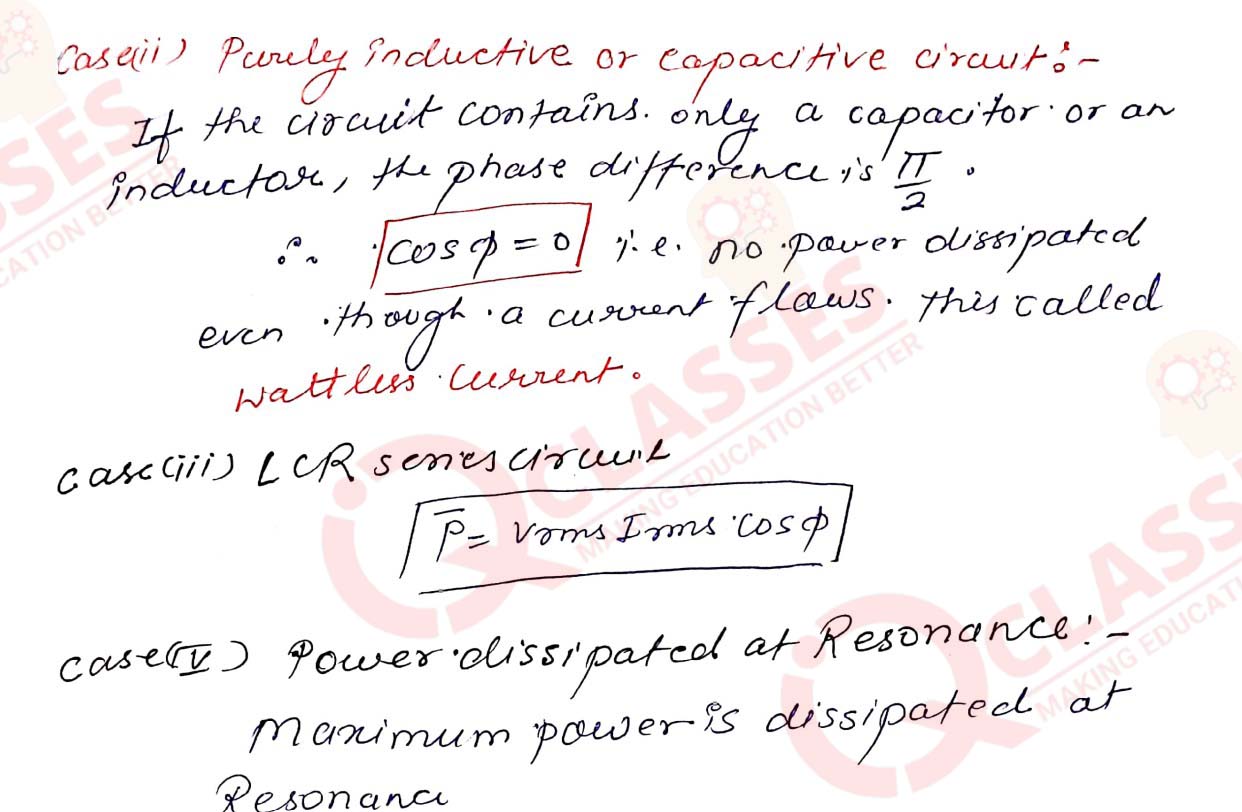 Case(ii) Purely inductive or capacitive circuit:-
If the circuit contains only a capacitor or an
inductor, the phase difference is π/2.
∴ cos φ = 0 i.e. no power dissipated
even though a current flows. this called
wattless current.
case(iii) LCR series circuit
P̅ = Vrms Irms cos φ
case(IV) Power dissipated at Resonance:-
Maximum power is dissipated at
Resonance
SES
CATION BETTER
CLASSES
MAKING EDUCATION BETTER
CLASS
MAKING EDUCATI